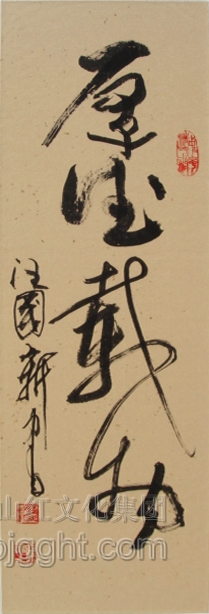 厚德载物
汪国新书
山红文化集团
bjgght.com